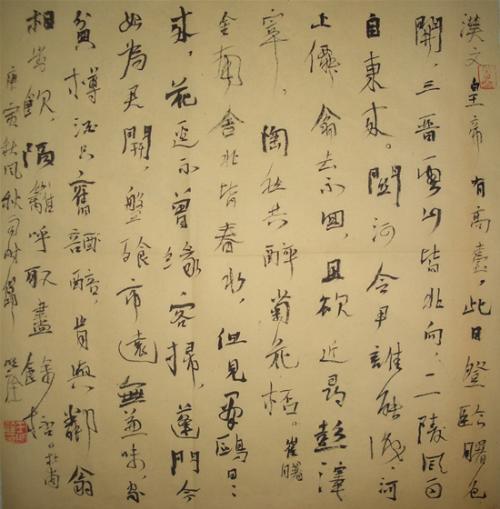 漢文皇帝有高臺，此日登臨曙色
開，三晋雲山皆北向，二陵風雨
自東來。關河令尹誰能識，河
上僊翁去不回，且欲近尋彭澤
宰，陶然共醉菊花杯。崔曙
舍南舍北皆春水，但見群鷗日日
來，花逕不曾緣客掃，蓬門今
始為君開，盤飱市遠無兼味，家
貧樽酒只舊醅，肯與鄰翁
相對飲，隔籬呼取盡餘杯。杜甫
庚寅秋風秋雨時節